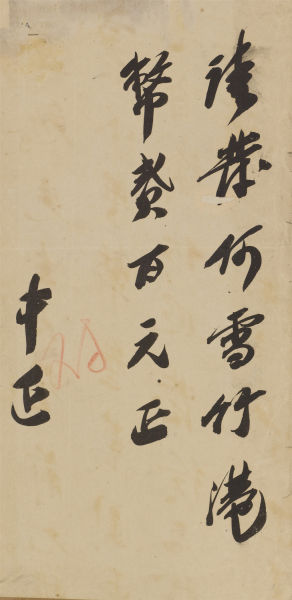 請發何雪竹港
幣貳百元正
中正